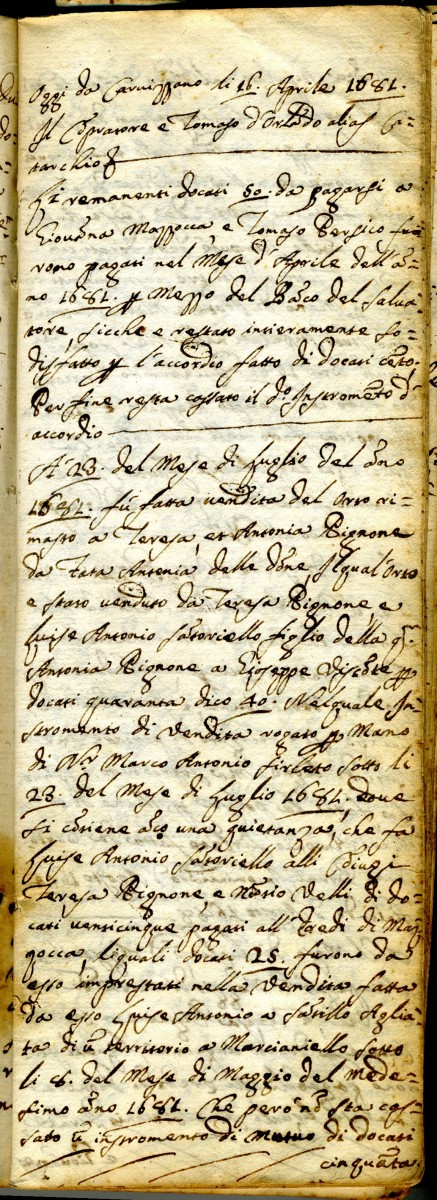 Oggi da Carvizzano li 16. Aprile 1681.
Il Cõpratore e Tomaso d'Orlãdo alias Ca-
tarchio
Li remanenti docati 50. da pagarsi a
Giovãna Mazzocca, e Tomaso Persico fu-
rono pagati nel Mese d'Aprile dell'ã-
no 1681. p Mezzo del Bãco del Salva-
tore, sicche e restato intieramente so-
disfatto p l'accordio fatto di docati cẽto,
Per fine resta cassato il dº Instromẽto d'
accordio
A' 23. del Mese di Luglio del ãno
1681. fù fatta vendita del Orto ri-
masto a Teresa, et Antonia Pignone
da Tata Antonia delle dõne, Il qual'Orto
e stato venduto da Teresa Pignone e
Luise Antonio Sãtoriello figlio della q.m
Antonia Pignone a Gioseppe Viscõte p
docati quaranta dico 40. Nel quale In-
stromento di vendita rogato p Mano
di Nr Marco Antonio Sirleto sotto li
23. del Mese di Luglio 1681. dove
si cõtiene ãco una quietanza, che fa
Luise Antonio Sãtoriello alli Cõiugi
Teresa Pignone, e Velli di do-
cati venticinque pagati all'Eredi di Maz-
zocca, liquali docati 25. furono da
esso imprestati nella vendita fatta
da esso Luise Antonio a Sãtillo Aglia-
ta di ũ territorio a Marcianiello sotto
li 8. del Mese di Maggio del mede-
simo ãno 1681. Che però nõ sta cas-
sato ũ instromento di mutuo di docati
cinquãta